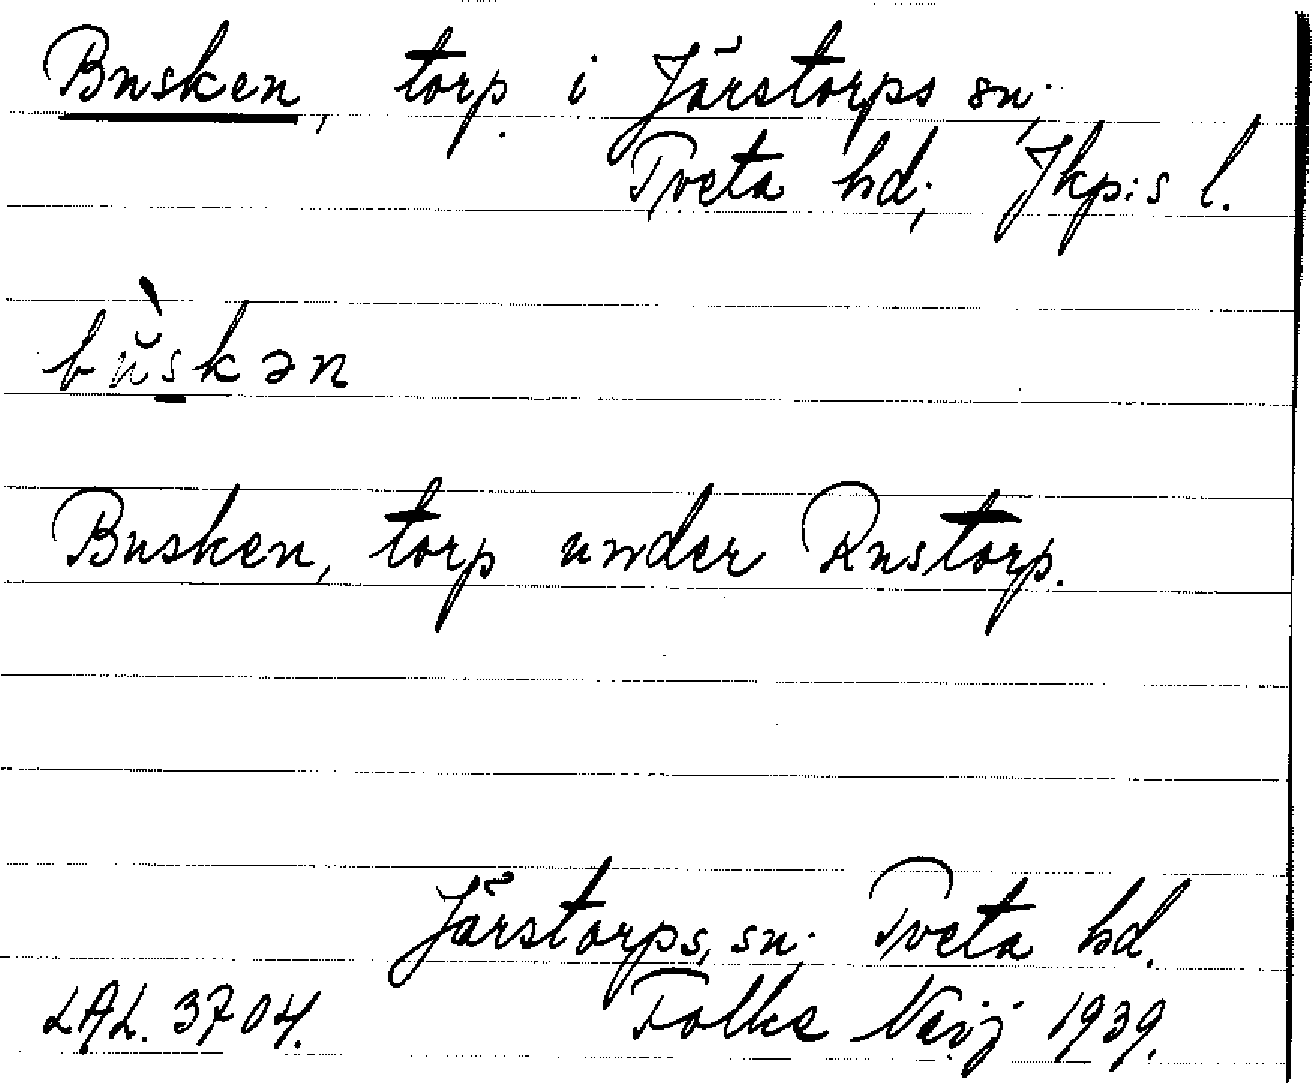 Busken, torp i Järstorps sn;
Tveta hd; Jkp:s l.
bùskən
Busken, torp under Rustorp.
Järstorps sn. Tveta hd.
LAL. 3704. Folke Neij 1939.